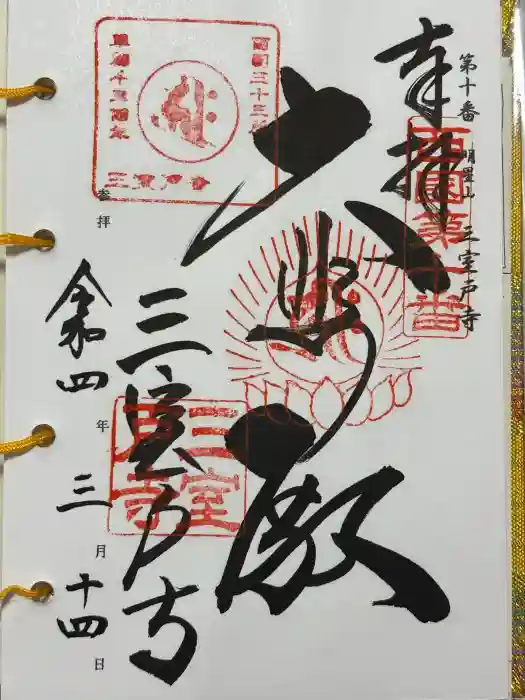 第十番 明星山 三室戸寺
奉拝
西国第十番
大悲殿
西国三十三所
草創千三百年
三室戸寺
三室戸寺
三室戸寺
参拝
令和四年三月十四日